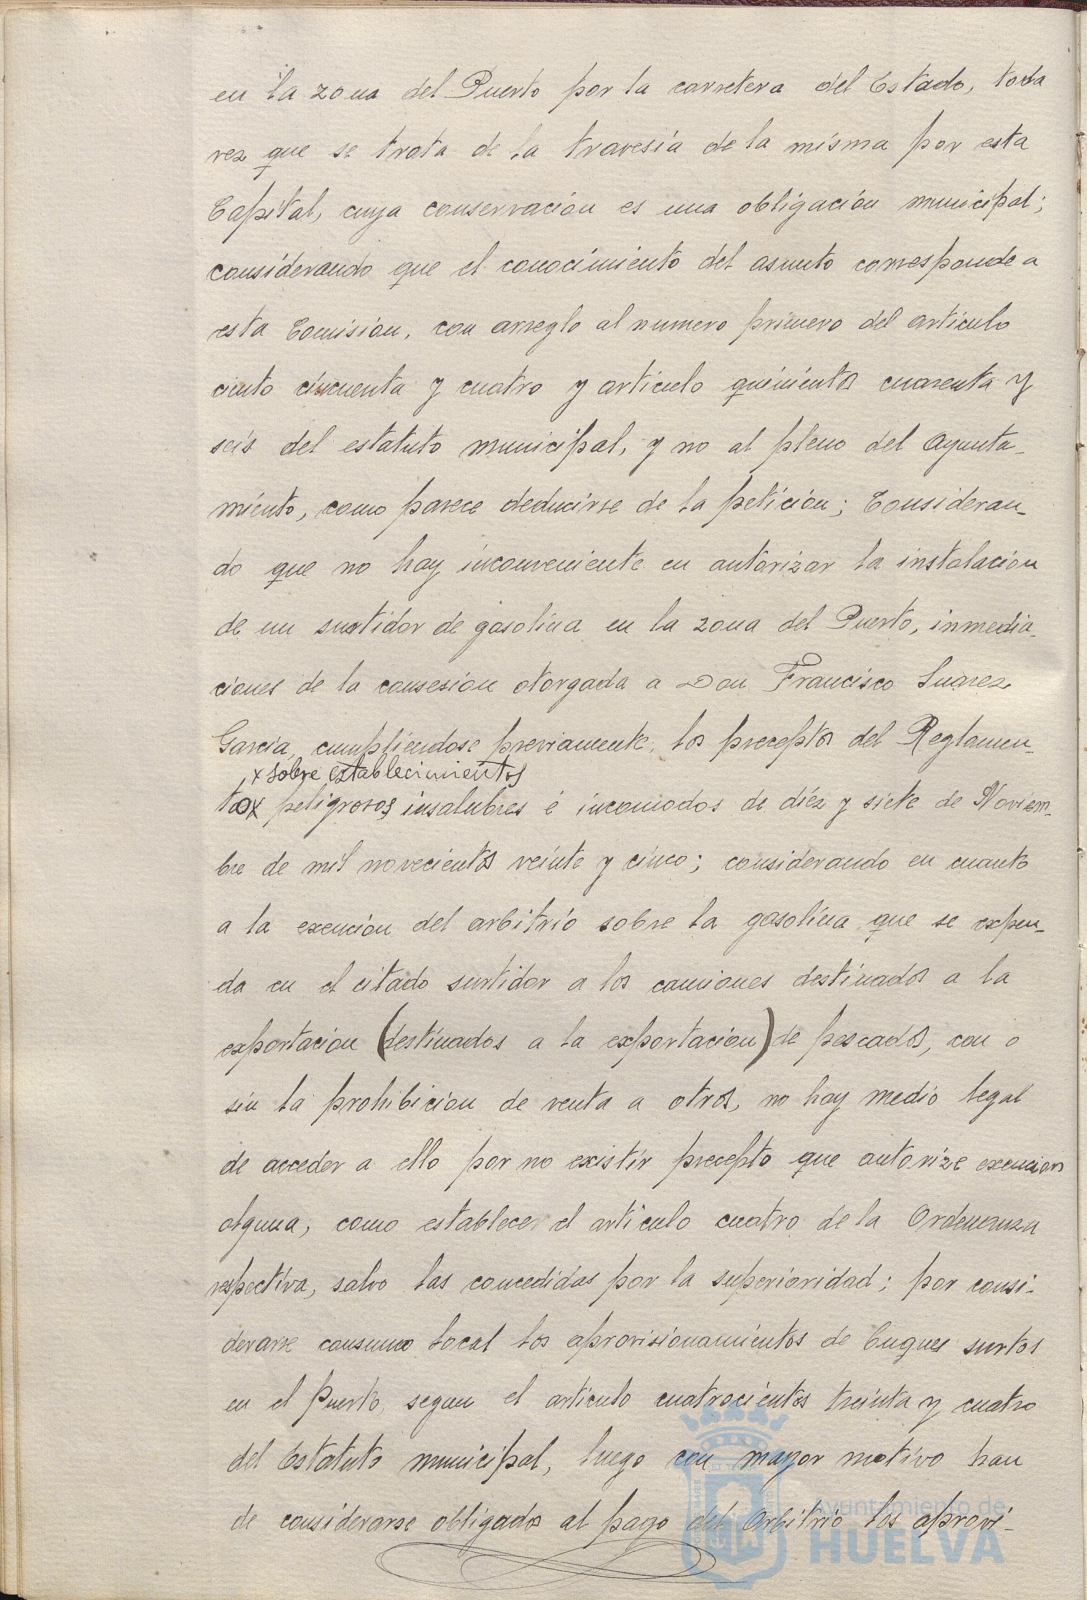 en la zona del Puerto por la carretera del Estado, toda
vez que se trata de la travesía de la misma por esta
Capital, cuya conservación es una obligación municipal;
considerando que el conocimiento del asunto corresponde a
esta Comisión, con arreglo al numero primero del articulo
ciento cincuenta y cuatro y articulo quinientos cuarenta y
seis del estatuto municipal, y no al pleno del Ayunta-
miento, como parece deducirse de la petición; Consideran-
do que no hay inconveniente en autorizar la instalación
de un surtidor de gasolina en la zona del Puerto, inmedia-
ciones de la consesión otorgada a Don Francisco Suarez
Garcia, cumpliendose previamente, los preceptos del Reglamen-
x sobre establecimientos
to x peligrosos, insalubres é incomodos de diez y siete de Noviem-
bre de mil novecientos veinte y cinco; considerando en cuanto
a la exención del arbitrio sobre la gasolina que se expen-
da en el citado surtidor a los camiones destinados a la
exportación (destinados a la exportación) de pescados, con o
sin la prohibición de venta a otros, no hay medio legal
de acceder a ello por no existir precepto que autorize exencion
alguna, como establece el articulo cuatro de la Ordenanza
respectiva, salvo las concedidas por la superioridad; por consi-
derarse consumo local los aprovisionamientos de buques surtos
en el Puerto, segun el articulo cuatrocientos treinta y cuatro
del Estatuto municipal, luego con mayor motivo han
de considerarse obligados al pago del Arbitrio los aprovi-
Ayuntamiento de
HUELVA